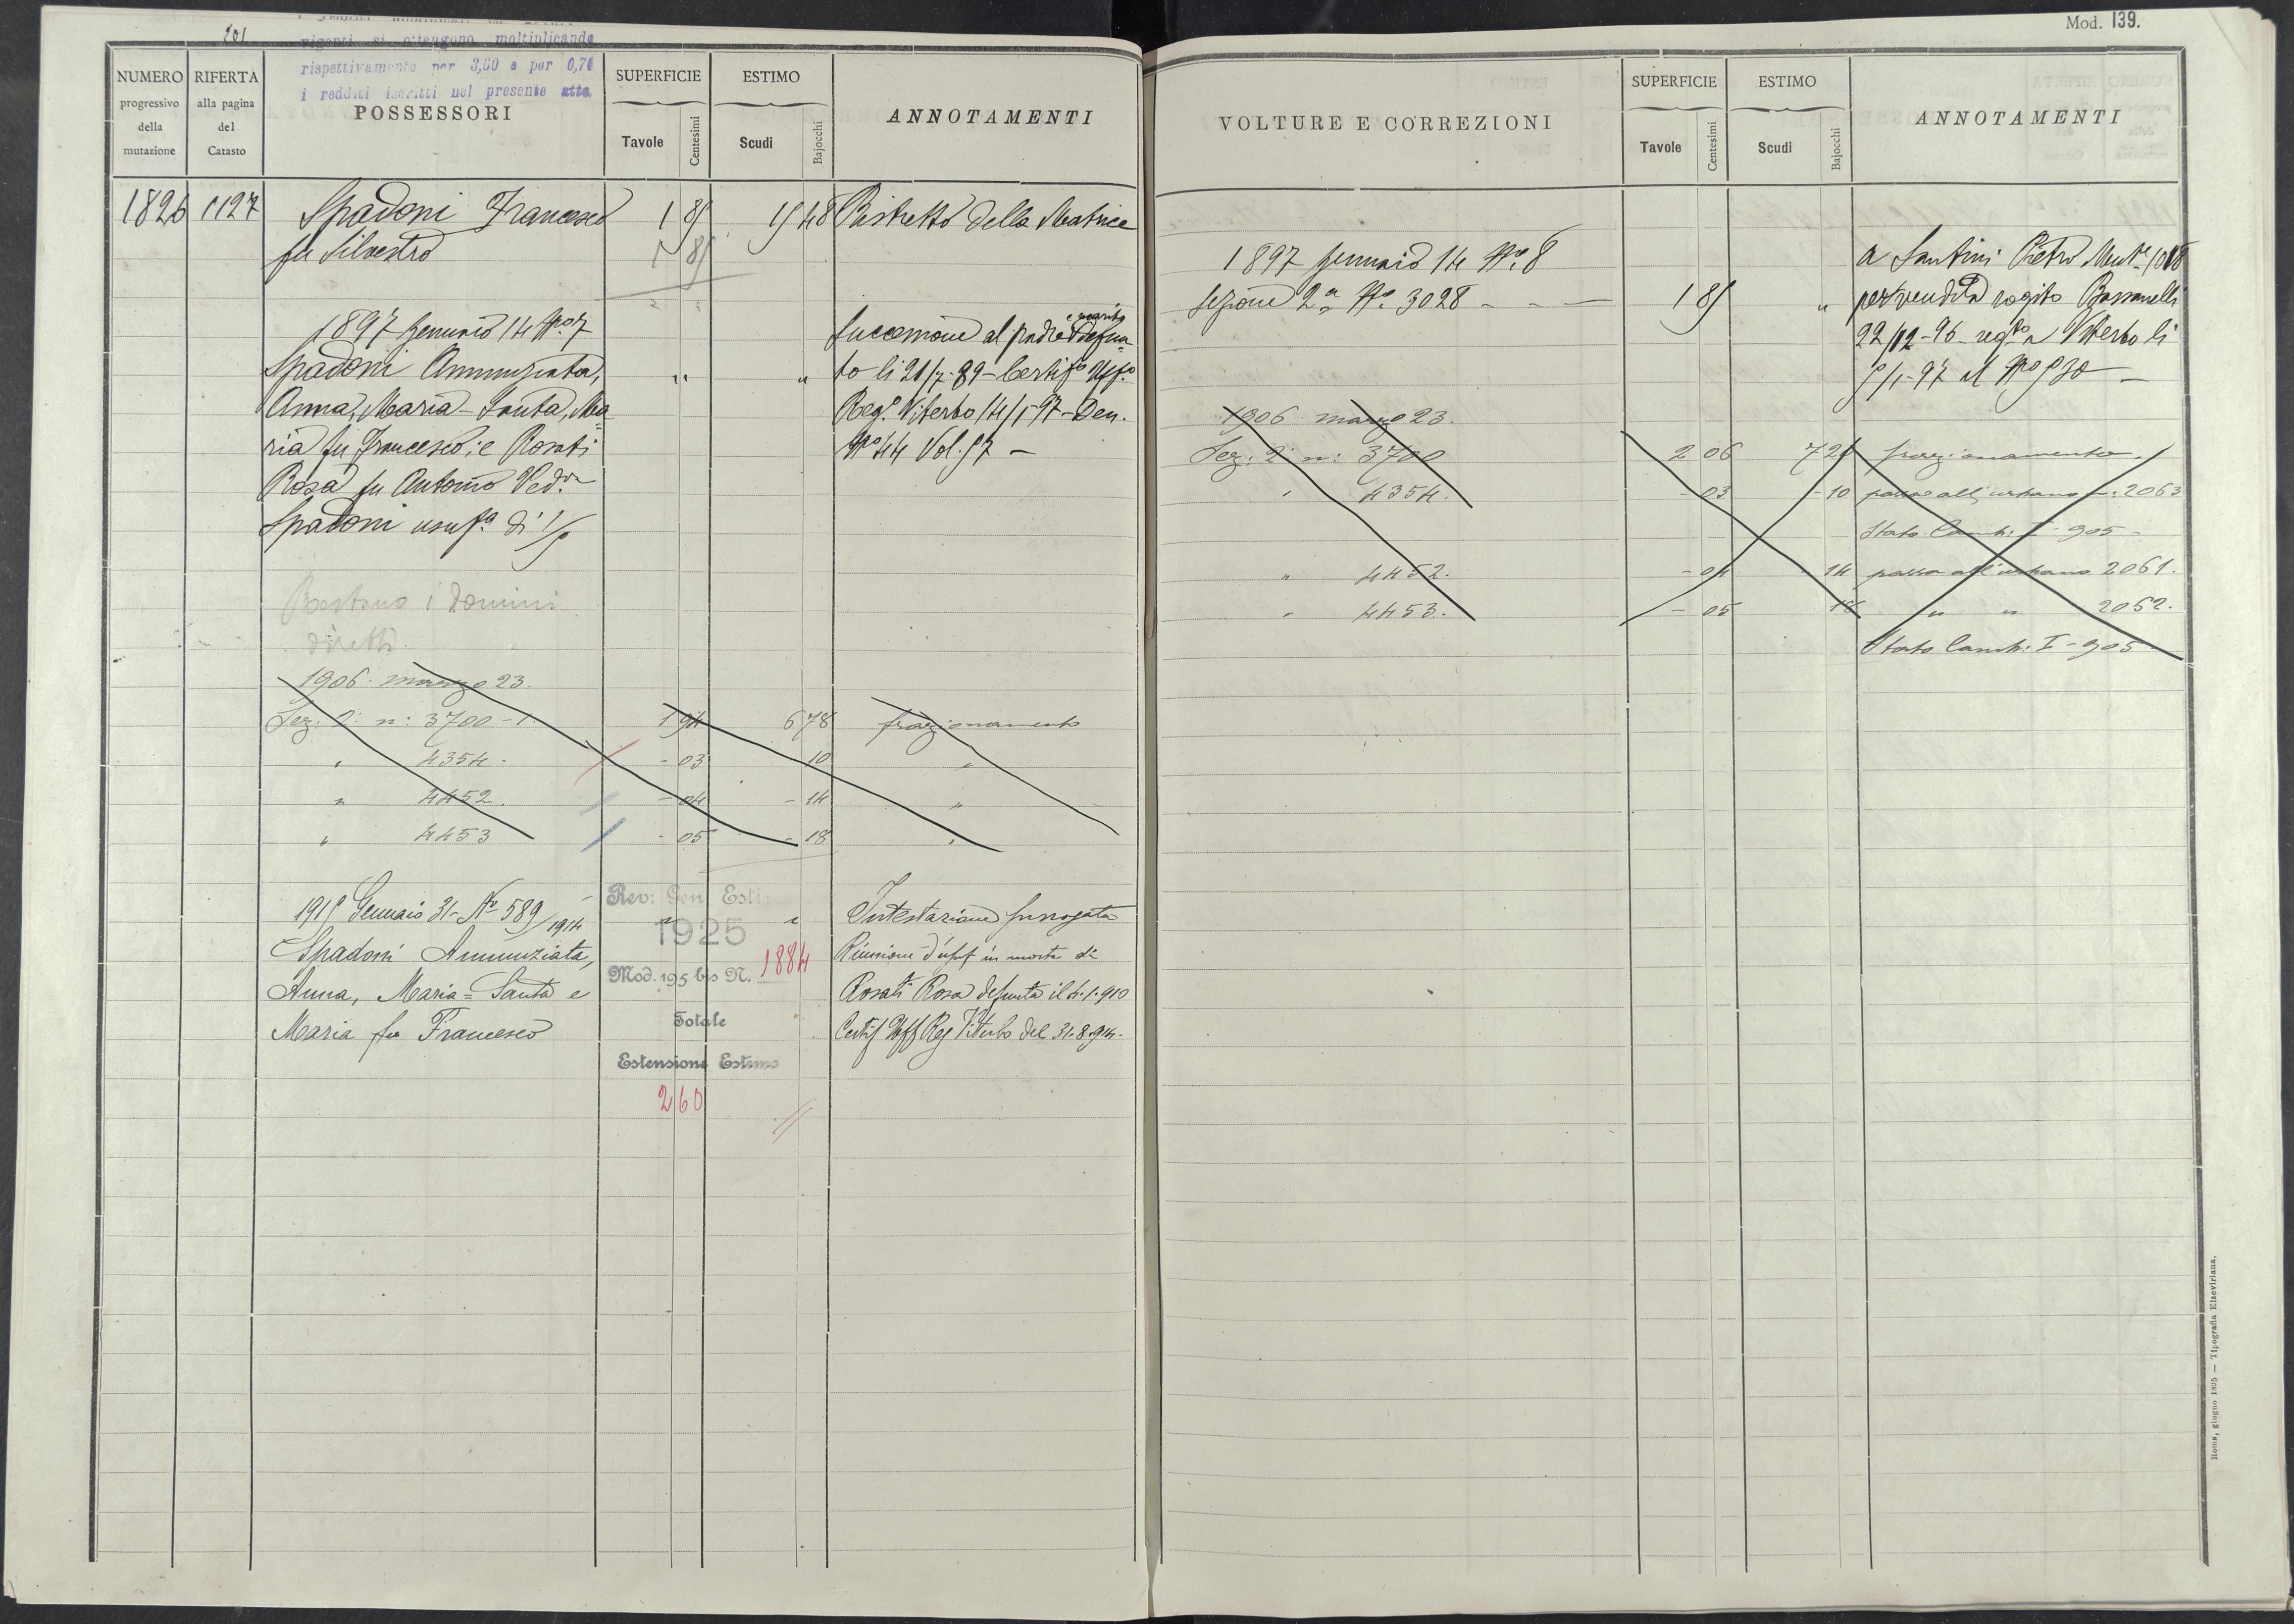 201
vigenti si ottengono moltiplicando
rispettivamente per 3,60 e per 0,76
i redditi iscritti nel presente atto
NUMERO progressivo della mutazione
RIFERTA alla pagina del Catasto
POSSESSORI
SUPERFICIE
Tavole Centesimi
ESTIMO
Scudi Bajocchi
ANNOTAMENTI
1826 1127 Spadoni Francesco 1 85 15 48 Ristretto della Matrice
fu Silvestro 1 85
1897 Gennaio 14 No 7 Successione al padre e marito defun=
Spadoni Annunziata, " " to li 21/7-89 - Certifo Uffo
Anna, Maria-Santa, Ma= Rego Viterbo 14/1-97 - Den.
ria fu Francesco; e Rosati No 44 Vol. 57 -
Rosa fu Antonio Ved.va
Spadoni usufa di 1/5
Restano i domini
diretti.
1906. marzo 23.
Sez: 2a n: 3700-1. 1 94 6 78 frazionamento
" 4354. - 03 10 "
" 4452. - 04 - 14 "
" 4453 - 05 - 18 "
1915 Gennaio 31 - No 589/1914 " " Intestazione surrogata
Spadoni Annunziata, Riunione d'usuf in morte di
Anna, Maria=Santa e Rosati Rosa defunta il 4.1.910
Maria fu Francesco Certif Uff Reg Viterbo del 31.8.914.
Rev: Gen Esti
1925
Mod. 195 bis N. 1884
Totale
Estensione Estimo
2 60
Mod. 139.
VOLTURE E CORREZIONI
SUPERFICIE
Tavole Centesimi
ESTIMO
Scudi Bajocchi
ANNOTAMENTI
1897 Gennaio 14 No. 8 a Santini Pietro Mut.e 1018
Sezione 2a No. 3028 - - - 1 85 " per vendita rogito Bassanelli
22/12-96 - regto a Viterbo li
5/1-97 al No 530 -
1906 marzo 23.
Sez: 2a n: 3700 2 06 7 20 frazionamento.
" 4354. - 03 - 10 passa all'urbano n: 2063
Stato Camb: I - 905 -
" 4452. - 04 - 14 passa all'urbano 2061.
" 4453. - 05 18 " " 2062.
Stato Camb: I - 905
Roma, giugno 1895 — Tipografia Elzeviriana.